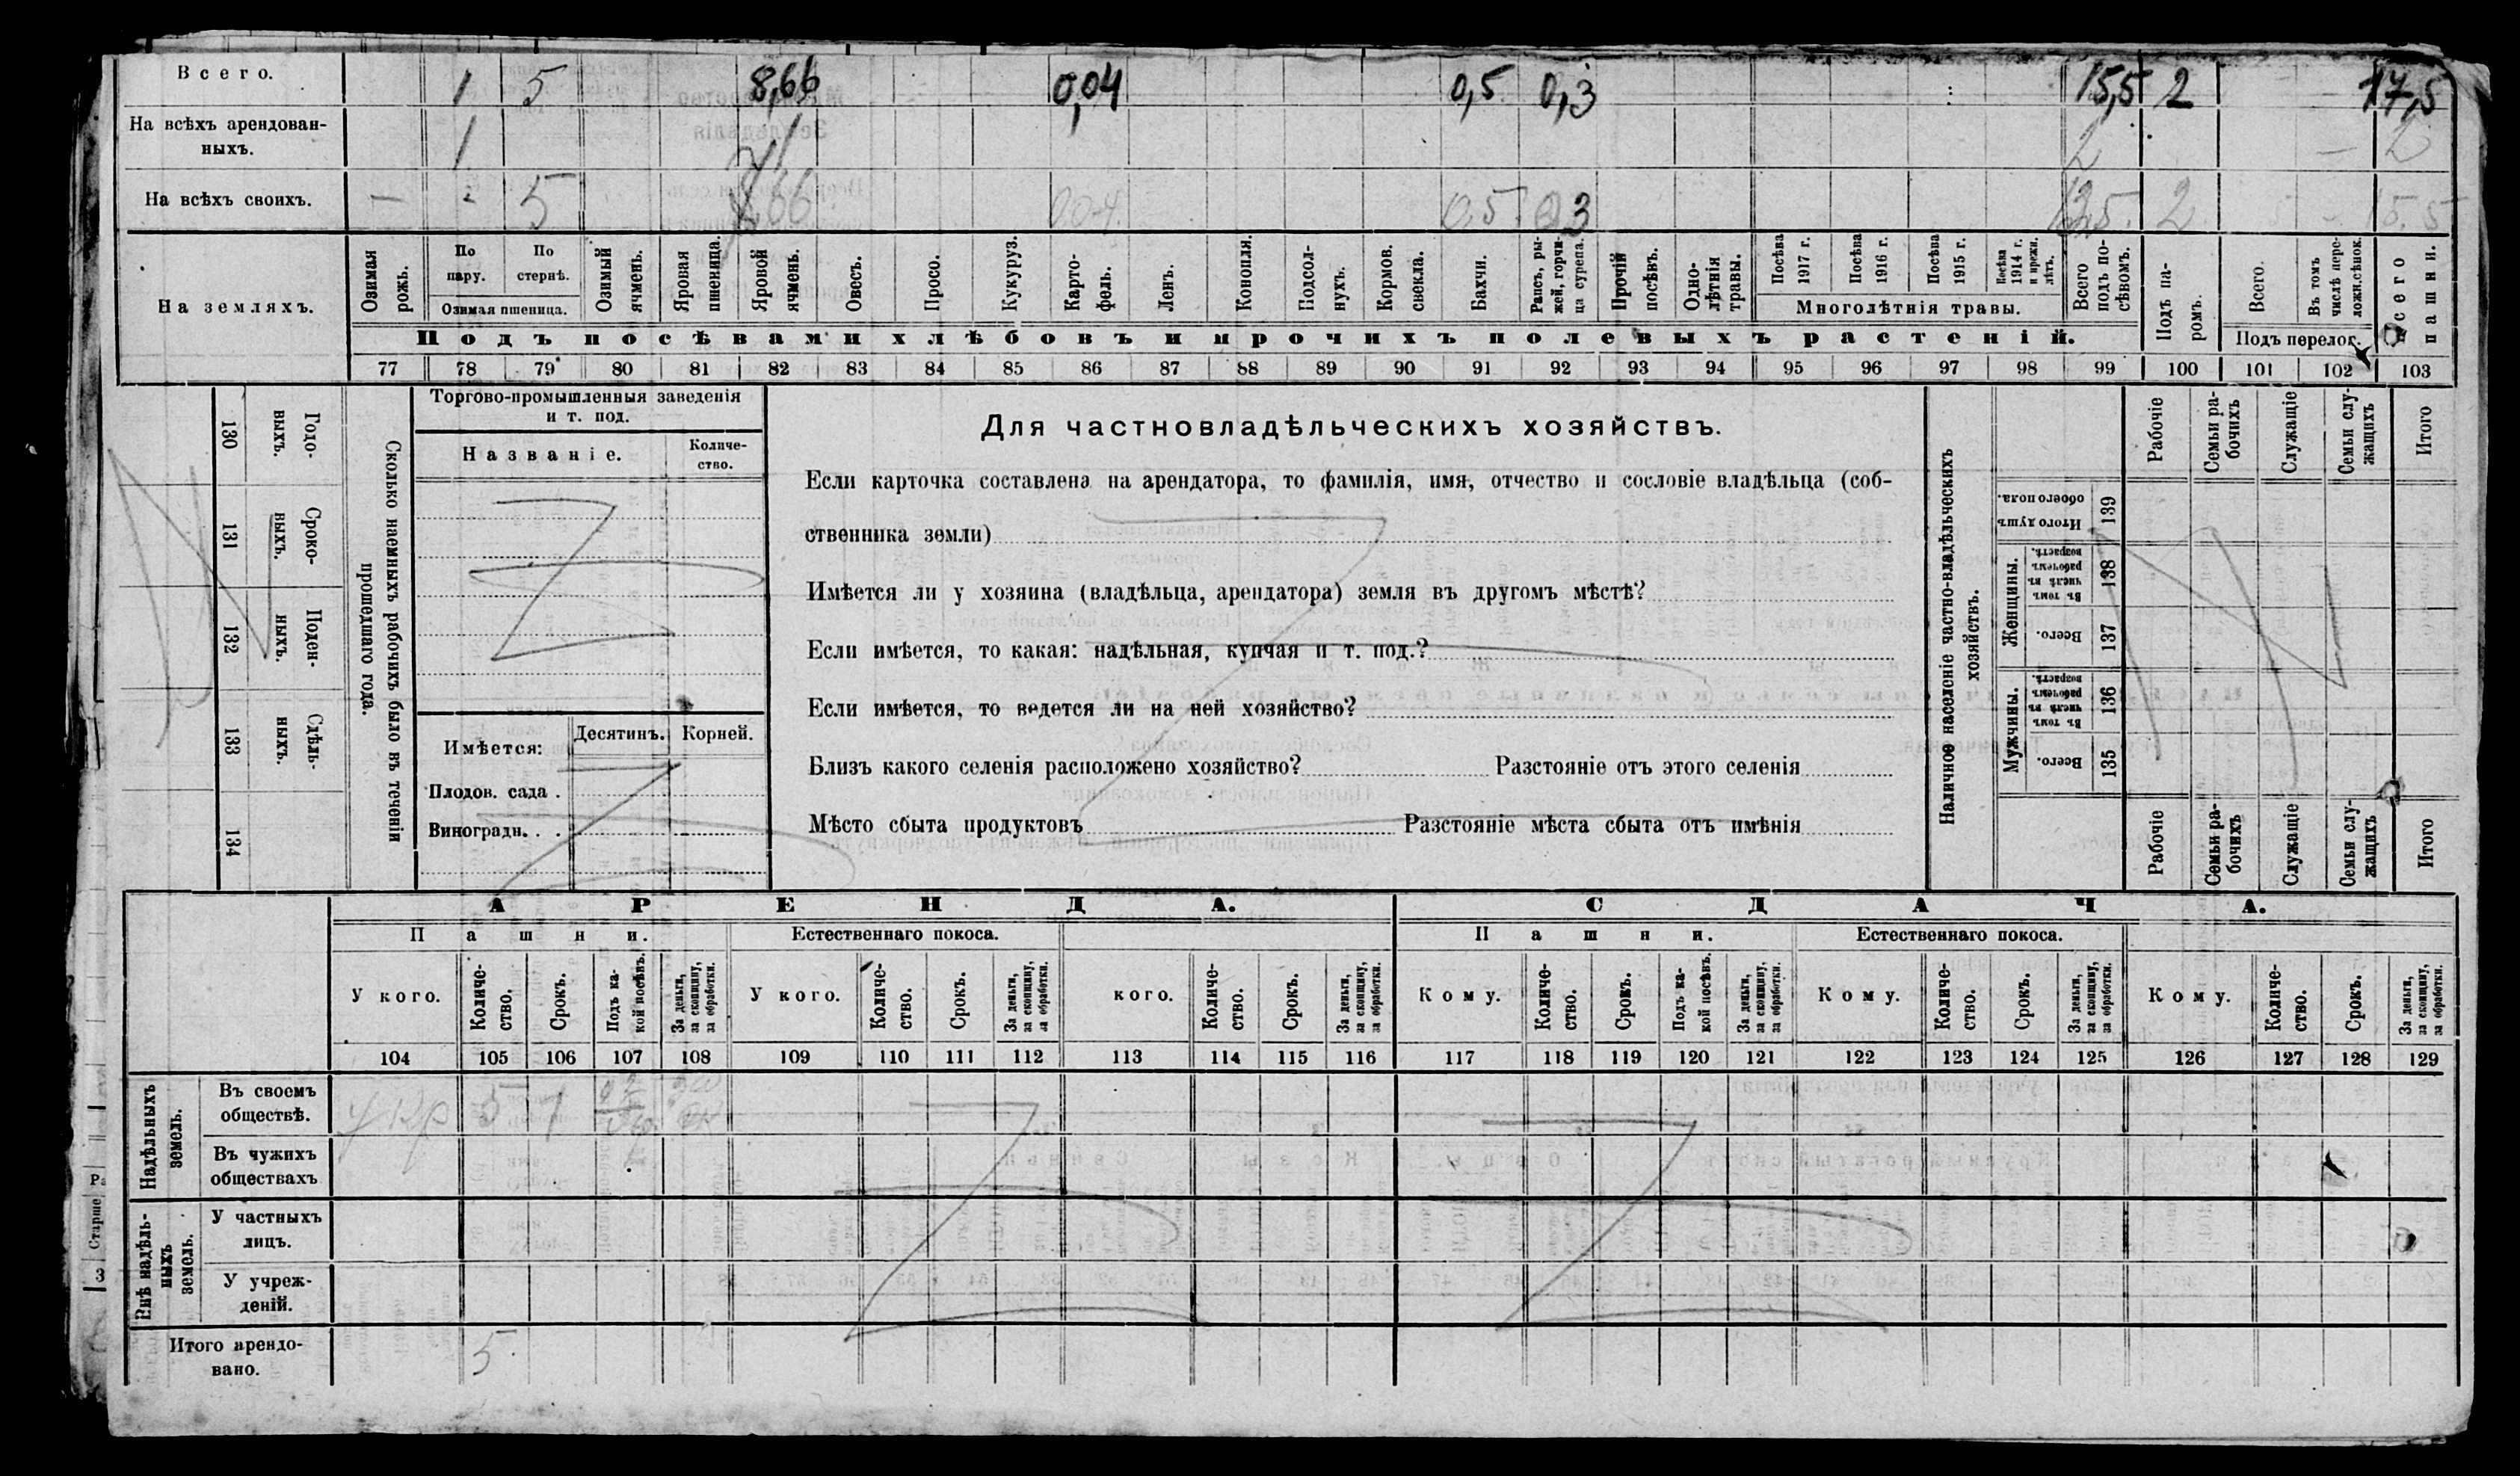 Всего. 1 5 8,66 0,04 0,5 0,3 15,5 2 17,5
На всѣхъ арендован-
ныхъ. 1 1 2 — 2
На всѣхъ своихъ. — 5 0.04. 0.5. 0.3 13,5. 2. 15.5
На земляхъ.
Озимая рожь.
По пару.
По стернѣ.
Озимая пшеница.
Озимый ячмень.
Яровая пшеница.
Яровой ячмень.
Овесъ.
Просо.
Кукуруз.
Карто-
фель.
Ленъ.
Конопля.
Подсол-
нухъ.
Кормов. свекла.
Бахчи.
Рапсъ, ры-
жей, горчи-
ца сурепа.
Прочій посѣвъ.
Одно-
лѣтнія травы.
Посѣва 1917 г.
Посѣва 1916 г.
Посѣва 1915 г.
Посѣва 1914 г. и прежн. лѣтъ.
Многолѣтнія травы.
Всего подъ по-
сѣвомъ.
Подъ па-
ромъ.
Всего.
Въ томъ числѣ пере-
ложн.сѣнок.
Подъ перелог.
Всего пашни.
Подъ посѣвами хлѣбовъ и прочихъ полевыхъ растеній.
77 78 79 80 81 82 83 84 85 86 87 88 89 90 91 92 93 94 95 96 97 98 99 100 101 102 103
Годо-
выхъ.
130
Сроко-
выхъ.
131
Поден-
ныхъ.
132
Сдѣль-
ныхъ.
133
134
Сколько наемныхъ рабочихъ было въ теченіи
прошедшаго года.
Торгово-промышленныя заведенія
и т. под.
Названіе.
Количе-
ство.
Имѣется:
Десятинъ. Корней.
Плодов. сада .
Виноградн. . .
Для частновладѣльческихъ хозяйствъ.
Если карточка составлена на арендатора, то фамилія, имя, отчество и сословіе владѣльца (соб-
ственника земли)
Имѣется ли у хозяина (владѣльца, арендатора) земля въ другомъ мѣстѣ?
Если имѣется, то какая: надѣльная, купчая и т. под.?
Если имѣется, то ведется ли на ней хозяйство?
Близъ какого селенія расположено хозяйство? Разстояніе отъ этого селенія
Мѣсто сбыта продуктовъ Разстояніе мѣста сбыта отъ имѣнія
Наличное населеніе частно-владѣльческихъ
хозяйствъ.
Рабочіе
Семьи ра-
бочихъ
Служащіе
Семьи слу-
жащихъ
Итого
Итого душъ обоего пола.
139
Женщины.
Въ томъ числѣ въ рабочемъ возрастѣ.
138
Всего.
137
Мужчины.
Въ томъ числѣ въ рабочемъ возрастѣ.
136
Всего.
135
Рабочіе
Семьи ра-
бочихъ
Служащіе
Семьи слу-
жащихъ
Итого
АРЕНДА.
СДАЧА.
Пашни.
Естественнаго покоса.
Пашни.
Естественнаго покоса.
У кого.
Количе-
ство.
Срокъ.
Подъ ка-
кой посѣвъ.
За деньги, за скопщину, за обработки.
У кого.
Количе-
ство.
Срокъ.
За деньги, за скопщину, за обработки.
кого.
Количе-
ство.
Срокъ.
За деньги, за скопщину, за обработки.
Кому.
Количе-
ство.
Срокъ.
Подъ ка-
кой посѣвъ.
За деньги, за скопщину, за обработки.
Кому.
Количе-
ство.
Срокъ.
За деньги, за скопщину, за обработки.
Кому.
Количе-
ство.
Срокъ.
За деньги, за скопщину, за обработки.
104 105 106 107 108 109 110 111 112 113 114 115 116 117 118 119 120 121 122 123 124 125 126 127 128 129
Надѣльныхъ
земель.
Въ своемъ
обществѣ. у кр 5 1
Въ чужихъ
обществахъ
Внѣ надѣль-
ныхъ
земель.
У частныхъ
лицъ.
У учреж-
деній.
Итого арендо-
вано. 5.
Старше
3